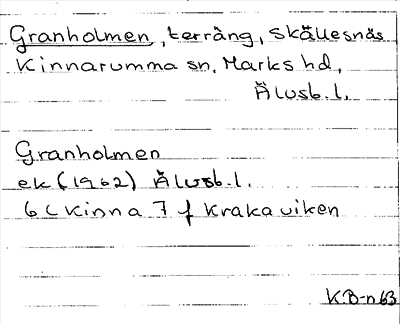 Granholmen, terräng, Skällesnäs
Kinnarumma sn, Marks hd,
Älvsb. l.
Granholmen
ek (1962) Älvsb. l.
6 C Kinna 7 f Krakaviken
KB-n 63